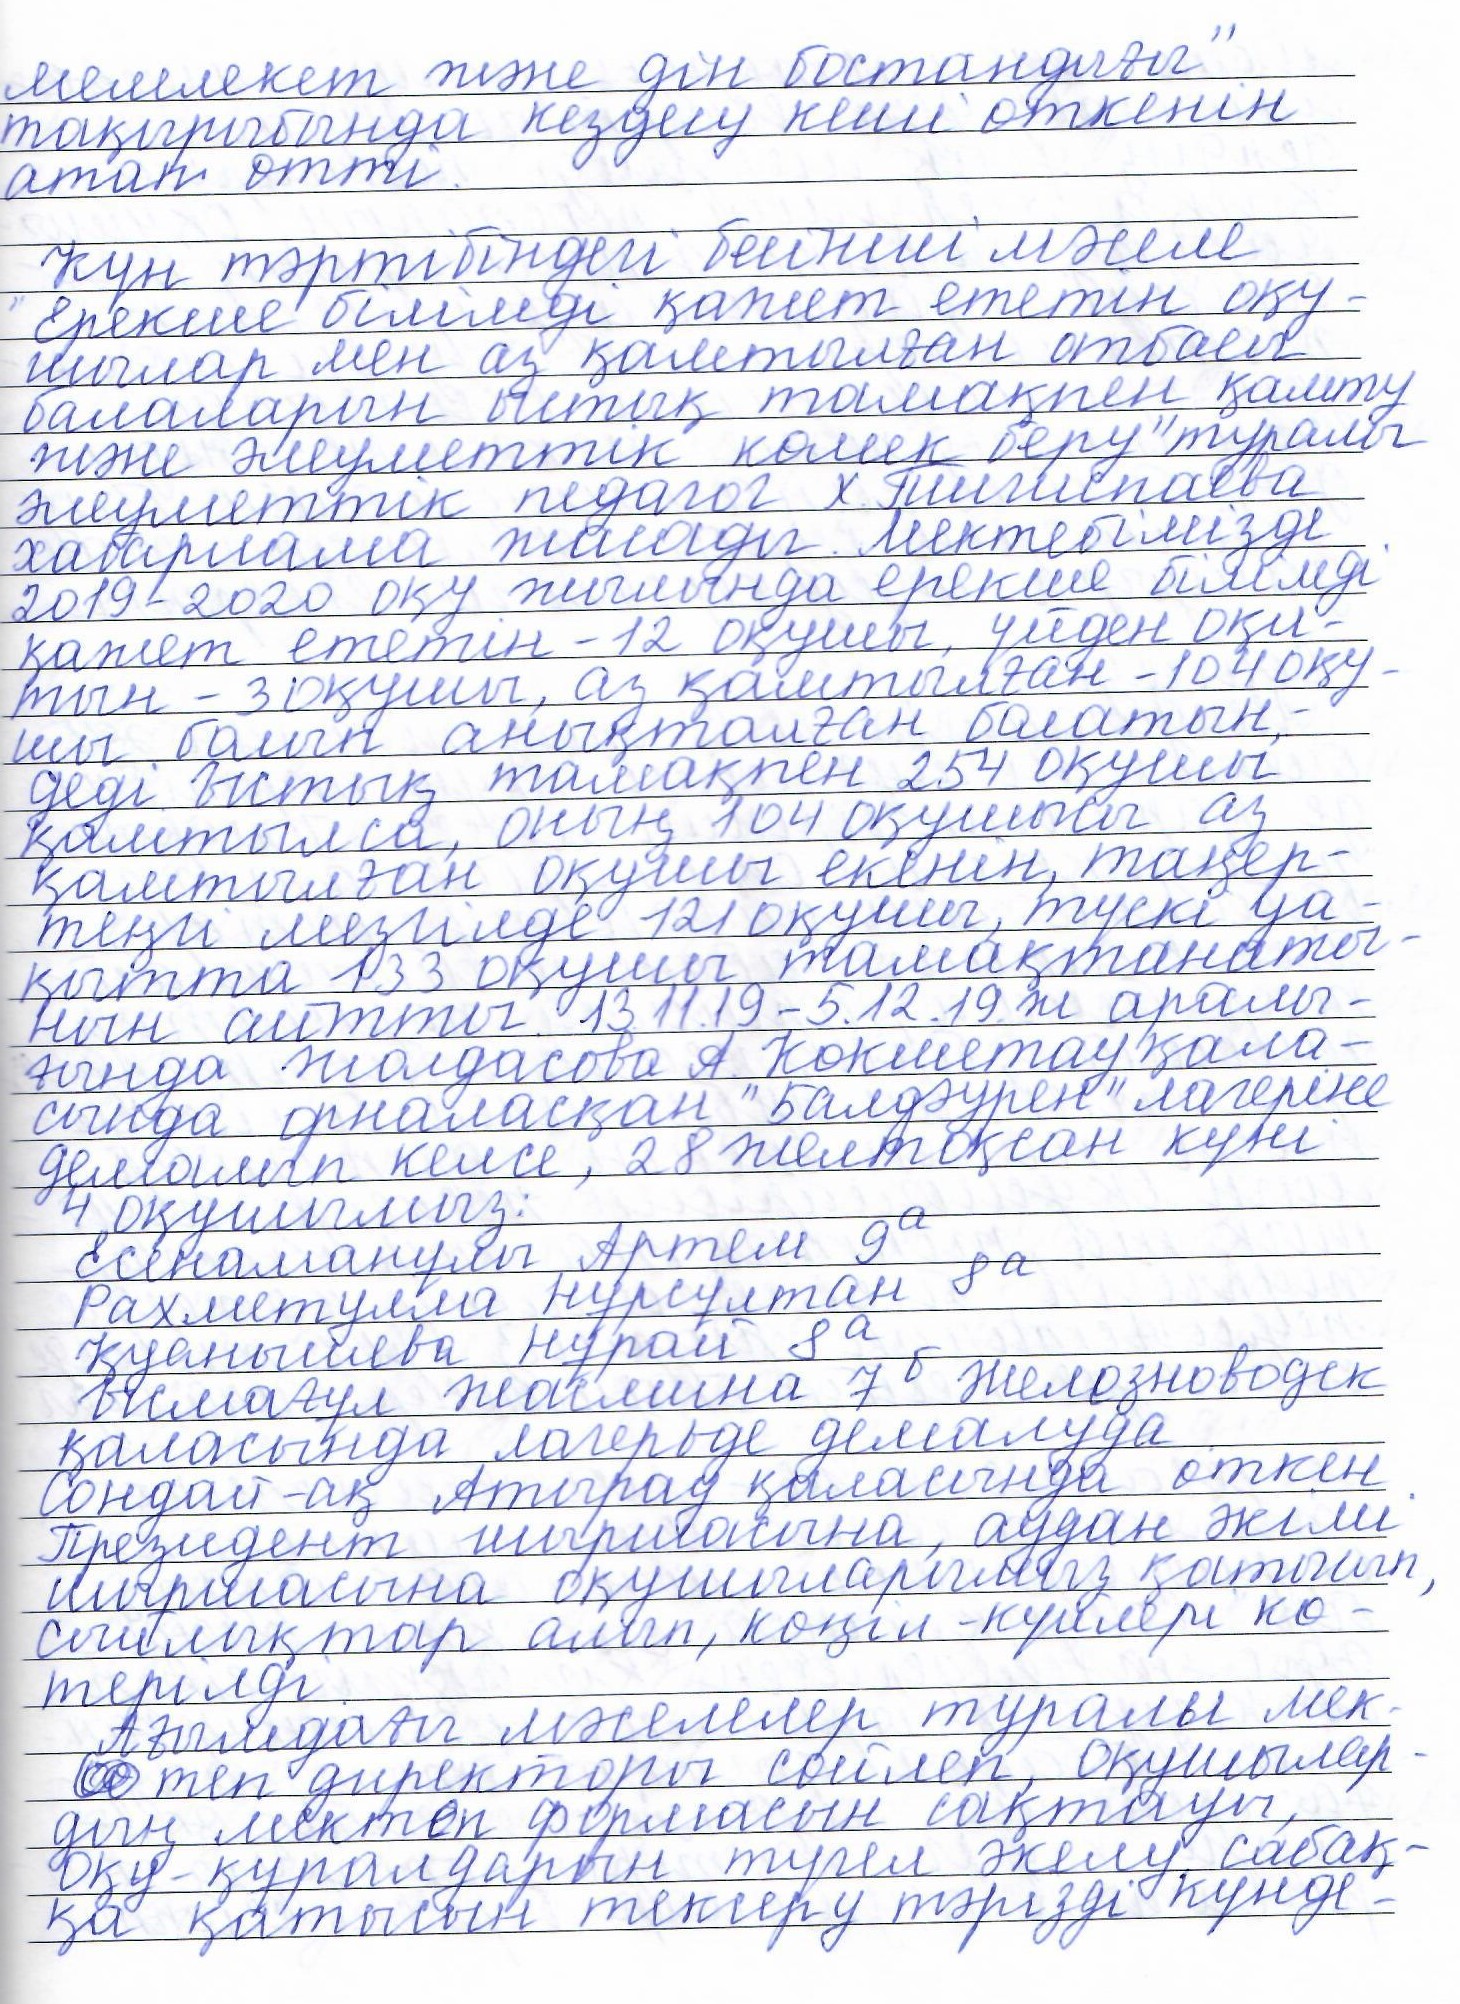 мемлекет және дін бостандығы"
тақырыбында кездесу кеші өткенін
атап өтті.
Күн тәртібіндегі бесінші мәселе
"Ерекше білімді қажет ететін оқу-
шылар мен аз қамтылған отбасы
балаларын ыстық тамақпен қамту
және әлеуметтік көмек беру" туралы
әлеуметтік педагог Х.
хабарлама жасады. Мектебімізде
2019-2020 оқу жылында ерекше білімді
қажет ететін - 12 оқушы, үйден оқи-
тын - 3 оқушы, аз қамтылған - 104 оқу-
шы болып анықталған болатын,-
деді. Ыстық тамақпен 254 оқушы
қамтылса, оның 104 оқушысы аз
қамтылған оқушы екенін, таңер-
теңгі мезгілде 121 оқушы, түскі уа-
қытта 133 оқушы тамақтанаты-
нын айтты. 13.11.19 - 5.12.19 ж аралы-
ғында Жолдасова А. Көкшетау қала-
сында орналасқан "Балдәурен" лагеріне
демалып келсе, 28 желтоқсан күні
4 оқушымыз:
Есенаманулы Артем 9а
Рахметулла Нурсултан 8а
Қуанышева Нурай 8а
Ысмағул Жасмина 7б Железноводск
қаласында лагерьде демалуда
Сондай-ақ Атырау қаласында өткен
Президент шыршасына, аудан әкімі
шыршасына оқушыларымыз қатысып,
сыйлықтар алып, көңіл-күйлері кө-
терілді.
Ағымдағы мәселелер туралы мек-
теп директоры сөйлеп, оқушылар-
дың мектеп формасын сақтауы,
оқу-құралдарын түгел әкелу, сабақ-
қа қатысын тексеру тәрізді күнде-